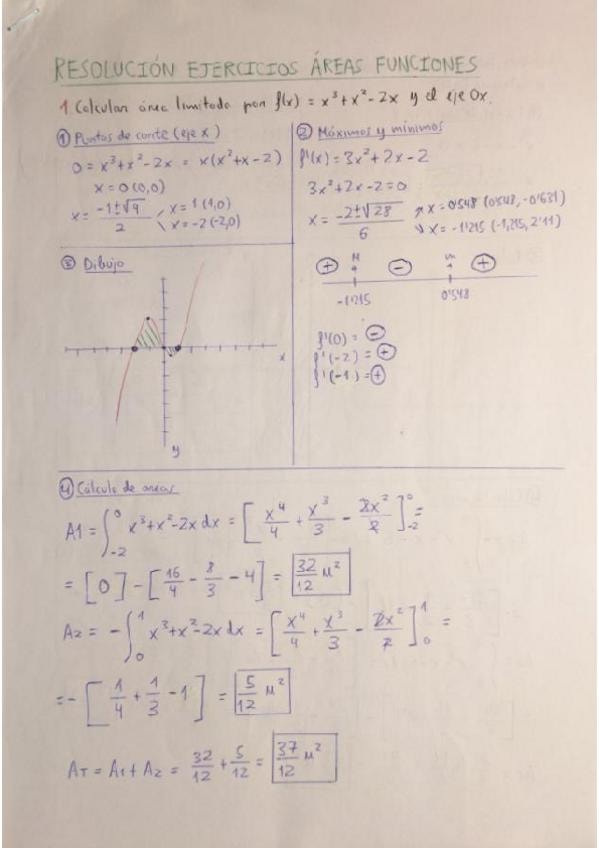 RESOLUCIÓN EJERCICIOS ÁREAS FUNCIONES
1. Calcular área limitada por f(x) = x³+x²-2x y el eje Ox.
① Puntos de corte (eje x)
0 = x³+x²-2x = x(x²+x-2)
x=0 (0,0)
x = (-1±√9)/2 x=1 (1,0)
x=-2 (-2,0)
② Máximos y mínimos
f'(x) = 3x²+2x-2
3x²+2x-2=0
x = (-2±√28)/6 x=0'548 (0'548, -0'631)
x=-1'215 (-1,215, 2'11)
⊕ M ⊖ m ⊕
-1'215 0'548
f'(0) = ⊖
f'(-2) = ⊕
f'(-1) = ⊕
③ Dibujo
x
y
④ Cálculo de areas
A1 = ∫₋₂⁰ x³+x²-2x dx = [x⁴/4 + x³/3 - 2x²/2]₋₂⁰ =
= [0] - [16/4 - 8/3 - 4] = 32/12 u²
A2 = -∫₀¹ x³+x²-2x dx = [x⁴/4 + x³/3 - 2x²/2]₀¹ =
= -[1/4 + 1/3 - 1] = 5/12 u²
AT = A1 + A2 = 32/12 + 5/12 = 37/12 u²